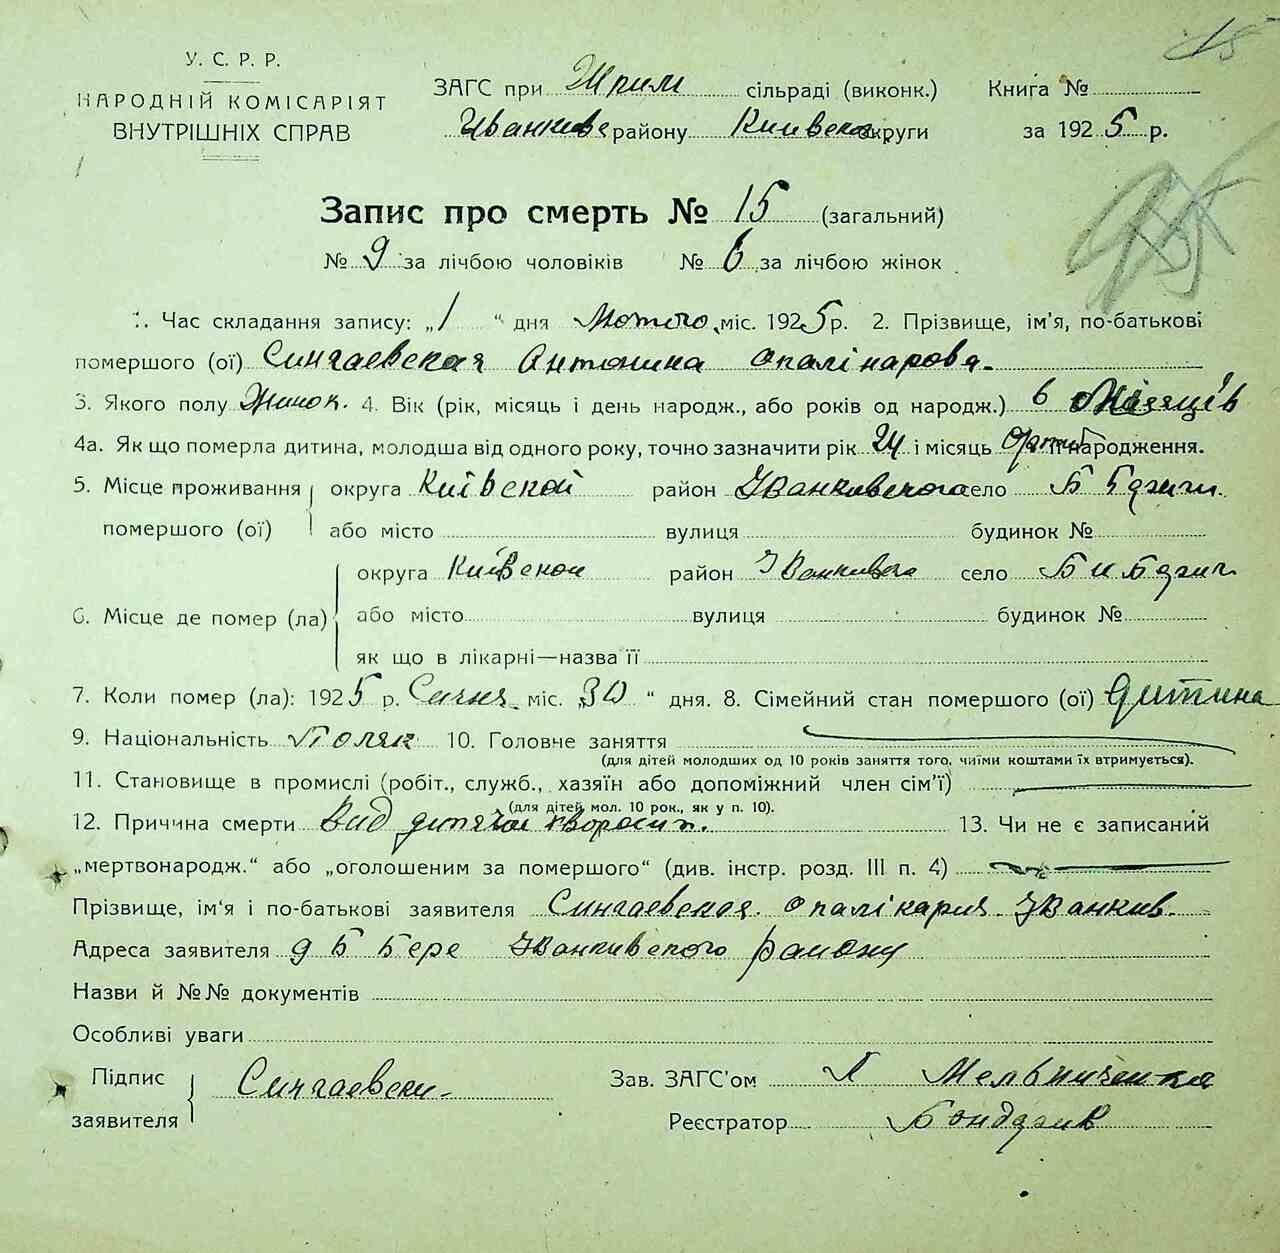 15
У. С. Р. Р.
НАРОДНІЙ КОМІСАРІЯТ
ВНУТРІШНІХ СПРАВ
ЗАГС при сільраді (виконк.) Книга №
Иванкивс району Киивской округи за 1925 р.
Запис про смерть № 15 (загальний)
№ 9 за лічбою чоловіків № 6 за лічбою жінок
1. Час складання запису: „1“ дня Лютого міс. 1925 р. 2. Прізвище, ім'я, по-батькові
помершого (ої) Сингаевская Антонина Опалінарова.
3. Якого полу Жинок. 4. Вік (рік, місяць і день народж., або років од народж.) 6 Місяців
4а. Як що померла дитина, молодша від одного року, точно зазначити рік 24 і місяць її народження.
5. Місце проживання округа Киівской район Иванковского село
помершого (ої) або місто вулиця будинок №
округа Киівской район Иванкивсго село
6. Місце де помер (ла) або місто вулиця будинок №
як що в лікарні—назва її
7. Коли помер (ла): 1925 р. Сичня міс. „30“ дня. 8. Сімейний стан помершого (ої) дитина
9. Національність Поляк 10. Головне заняття
(для дітей молодших од 10 років заняття того, чиїми коштами їх втримується).
11. Становище в промислі (робіт., служб., хазяїн або допоміжний член сім'ї)
(для дітей мол. 10 рок., як у п. 10).
12. Причина смерти Вид дитячои 13. Чи не є записаний
„мертвонародж.“ або „оголошеним за помершого“ (див. інстр. розд. III п. 4)
Прізвище, ім'я і по-батькові заявителя Сингаевская Опалікария Иванкив.
Адреса заявителя Иванкивского району
Назви й №№ документів
Особливі уваги
Підпис заявителя Сингаевски Зав. ЗАГС'ом Мельниченко
Реєстратор Бондзик